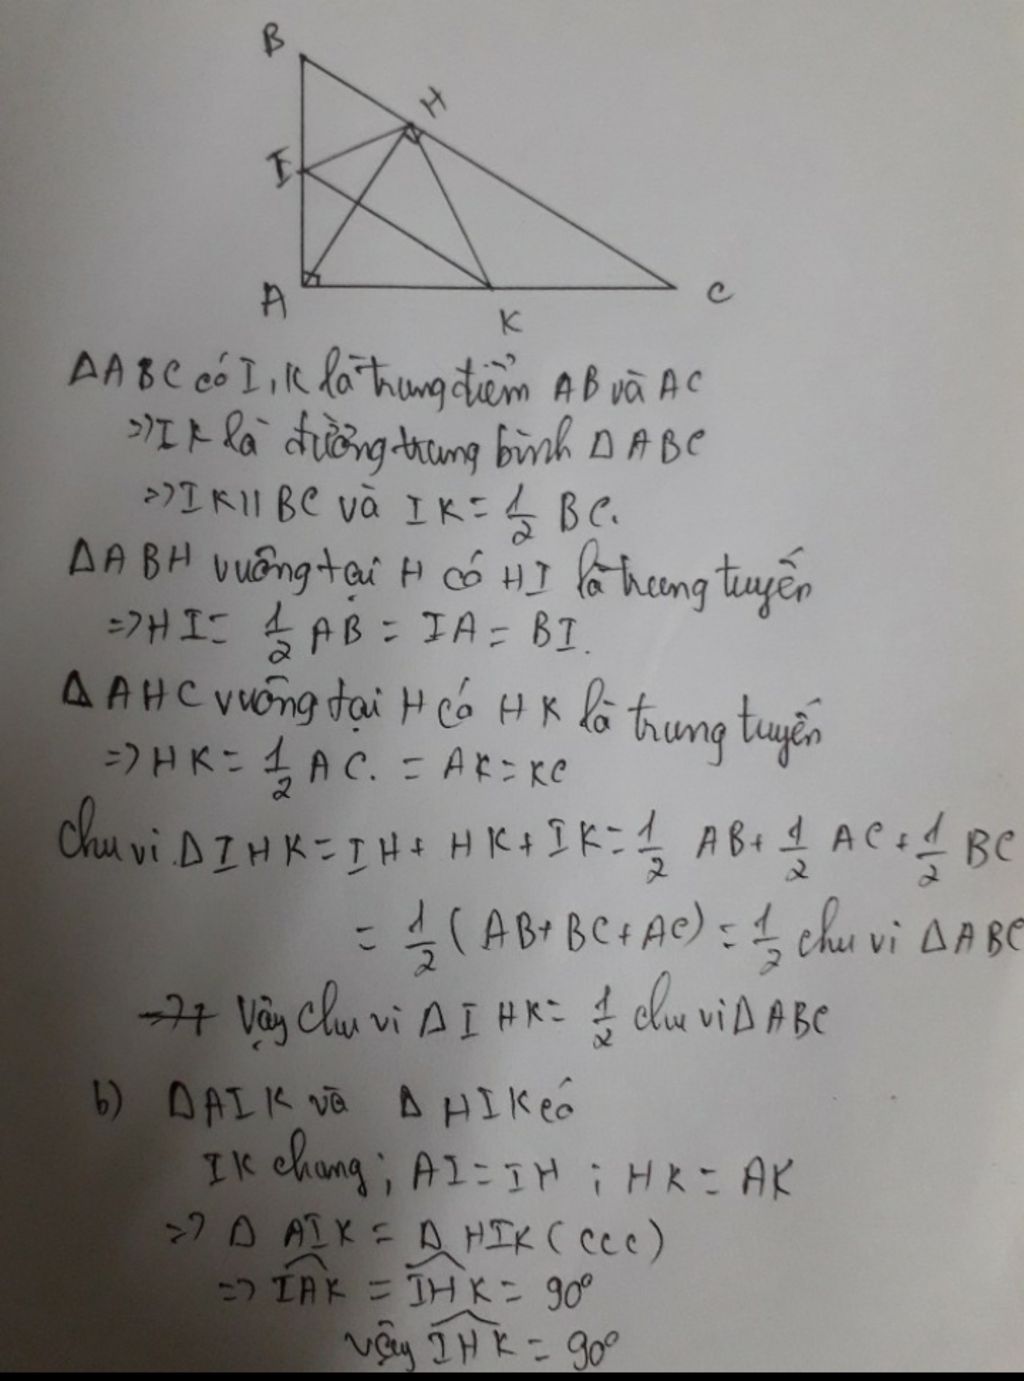 B
H
I
A
K
C
ΔABC có I, K là trung điểm AB và AC
=> IK là đường trung bình ΔABC
=> IK // BC và IK = 1/2 BC.
ΔABH vuông tại H có HI là trung tuyến
=> HI = 1/2 AB = IA = BI.
ΔAHC vuông tại H có HK là trung tuyến
=> HK = 1/2 AC. = AK = KC
Chu vi ΔIHK = IH + HK + IK = 1/2 AB + 1/2 AC + 1/2 BC
= 1/2 (AB + BC + AC) = 1/2 chu vi ΔABC
Vậy chu vi ΔIHK = 1/2 chu vi ΔABC
b) ΔAIK và ΔHIK có
IK chung; AI = IH; HK = AK
=> ΔAIK = ΔHIK (ccc)
=> \widehat{IAK} = \widehat{IHK} = 90°
vậy \widehat{IHK} = 90°